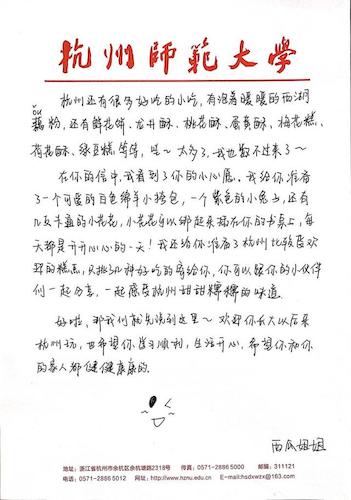 杭州師範大學
杭州还有很多好吃的小吃，有泡着暖暖的西湖
ǒu
藕粉，还有鲜花饼、龙井酥、桃花酥、蛋黄酥、梅花糕、
荷花酥、绿豆糕等等，哇～太多了，我也数不过来了～
在你的信中，我看到了你的小心愿。我给你准备
了一个可爱的白色绵羊小挎包，一个紫色的小兔子，还有
几支卡通的小花花，小花花可以绑起来插在你的书桌上，每
天都是开开心心的一天！我还给你准备了杭州比较受欢
迎的糕点，只挑几种好吃的寄给你，你可以跟你的小伙伴
们一起分享，一起感受杭州甜甜糯糯的味道。
好啦，那我们就先说到这里～欢迎你长大以后来
杭州玩，也希望你学习顺利，生活开心，希望你和你
的家人都健健康康的。
西瓜姐姐
地址：浙江省杭州市余杭区余杭塘路2318号 传真：0571-2886 5000 邮编：311121
电话：0571-2886 5012 网址：http://www.hznu.edu.cn E-mail:hsdxwzx@163.com